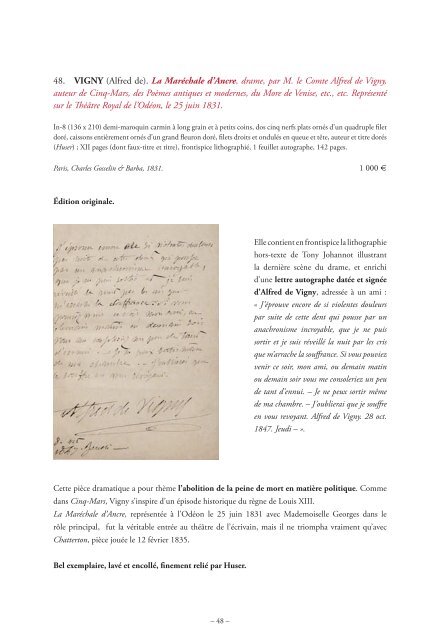 48. VIGNY (Alfred de). La Maréchale d'Ancre. drame, par M. le Comte Alfred de Vigny,
auteur de Cinq-Mars, des Poèmes antiques et modernes, du More de Venise, etc., etc. Représenté
sur le Théâtre Royal de l'Odéon, le 25 juin 1831.
In-8 (136 x 210) demi-maroquin carmin à long grain et à petits coins, dos cinq nerfs plats ornés d'un quadruple filet
doré, caissons entièrement ornés d'un grand fleuron doré, filets droits et ondulés en queue et tête, auteur et titre dorés
(Huser) ; XII pages (dont faux-titre et titre), frontispice lithographié, 1 feuillet autographe, 142 pages.
Paris, Charles Gosselin & Barba, 1831. 1 000 €
Édition originale.
J'éprouve encore de si violentes douleurs
par suite de cette dent qui pousse
par un anachronisme incroyable,
que je ne puis sortir et
suis réveillé la nuit par les cris que
m'arrache la souffrance. Si vous
pouviez venir ce soir, mon ami, ou
demain matin ou demain soir
vous me consoleriez un peu de tant
d'ennui. – Je ne puis sortir même
de ma chambre. – J'oublierai que
je souffre en vous revoyant.
Alfred de Vigny
28 oct.
1847. Jeudi –
Elle contient en frontispice la lithographie
hors-texte de Tony Johannot illustrant
la dernière scène du drame, et enrichi
d'une lettre autographe datée et signée
d'Alfred de Vigny, adressée à un ami :
« J'éprouve encore de si violentes douleurs
par suite de cette dent qui pousse par un
anachronisme incroyable, que je ne puis
sortir et je suis réveillé la nuit par les cris
que m'arrache la souffrance. Si vous pouviez
venir ce soir, mon ami, ou demain matin
ou demain soir vous me consoleriez un peu
de tant d'ennui. – Je ne peux sortir même
de ma chambre. – J'oublierai que je souffre
en vous revoyant. Alfred de Vigny. 28 oct.
1847. Jeudi – ».
Cette pièce dramatique a pour thème l'abolition de la peine de mort en matière politique. Comme
dans Cinq-Mars, Vigny s'inspire d'un épisode historique du règne de Louis XIII.
La Maréchale d'Ancre, représentée à l'Odéon le 25 juin 1831 avec Mademoiselle Georges dans le
rôle principal, fut la véritable entrée au théâtre de l'écrivain, mais il ne triompha vraiment qu'avec
Chatterton, pièce jouée le 12 février 1835.
Bel exemplaire, lavé et encollé, finement relié par Huser.
– 48 –